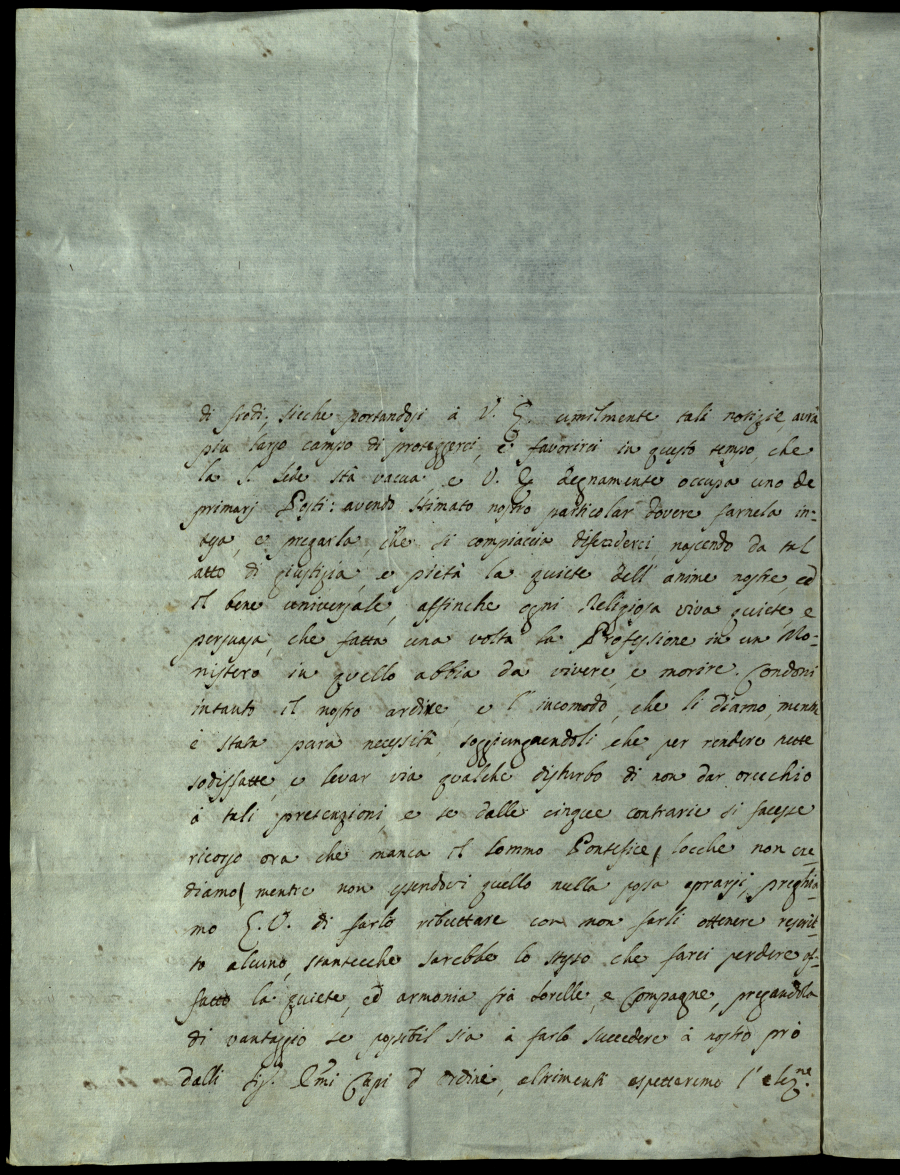 di frodi; sicche portandosi à V. E. umilmente tali notizie avrà
piu largo campo di proteggerci, e favorirci in questo tempo, che
la S. Sede stà vacua, e V. E. degnamente occupa uno de
primarj Posti: avendo stimato nostro particolar dovere farnela in-
tesa, e pregarla, che si compiaccia difenderci, nascendo da tal
atto di giustizia, e pietà la quiete dell' anime nostre, ed
il bene universale, affinche ogni Religiosa viva quieta e
persuasa, che fatta una volta la Professione in un Mo-
nistero in quello abbia da vivere, e morire. Condoni
intanto il nostro ardire, e l' incomodo, che li diamo, mentre
è stata pura necessità, soggiungnendoli, che per rendere
sodisfatte, e levar via qualche disturbo di non dar orecchio
à tali pretenzioni, e se dalle cinque contrarie si facesse
ricorso ora che manca il Sommo Pontefice( locche non cre-
diamo( mentre non essendoci quello nulla possa oprarsi, preghia-
mo E. V. di farlo ributtare con non farli ottenere rescrit-
to alcuno, stantecche sarebbe lo stesso che farci perdere af-
fatto la quiete, ed armonia frà Sorelle, e Compagne, pregandola
di vantaggio se possibil sia à farlo succedere à nostro prò
dalli Sig.ri Emi Capi d' ordine, altrimenti aspetteremo l' elez.ne